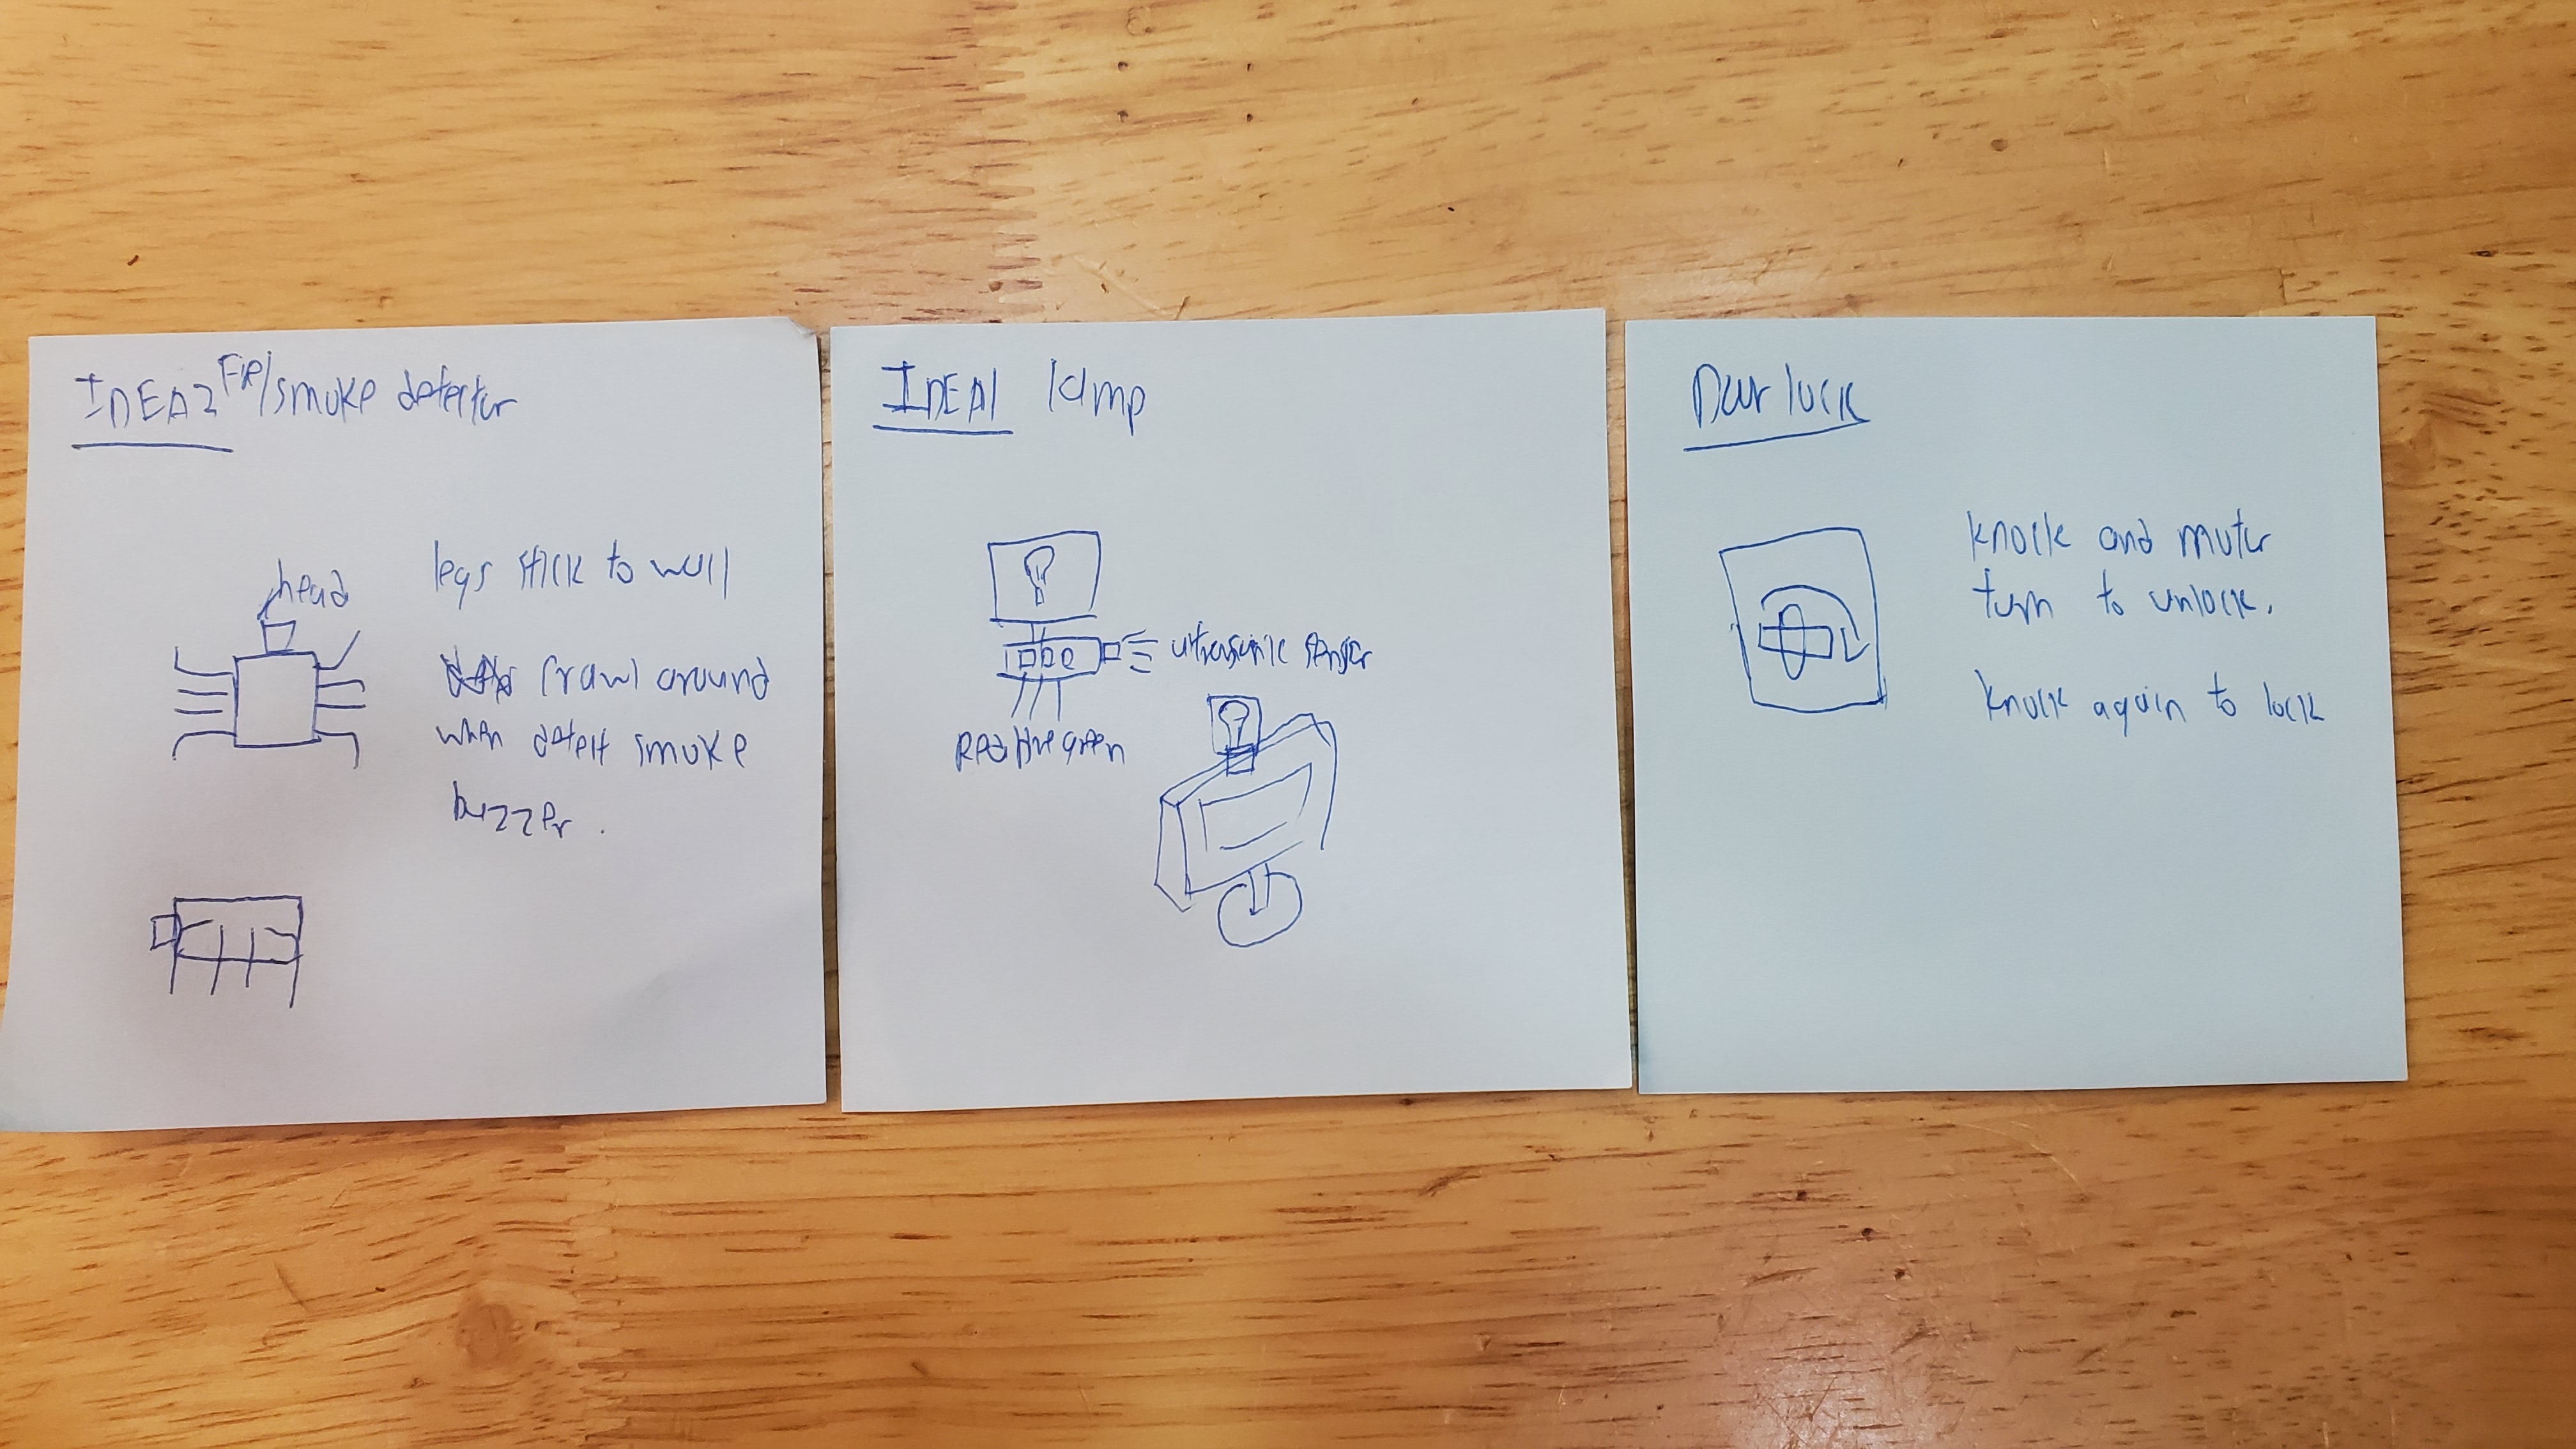 IDEA2 Fire/smoke detector
head
legs stick to wall
crawl around
when detect smoke
buzzer.
IDEA1 lamp
ultrasonic sensor
Red blue green
Door lock
knock and motor
turn to unlock.
knock again to lock